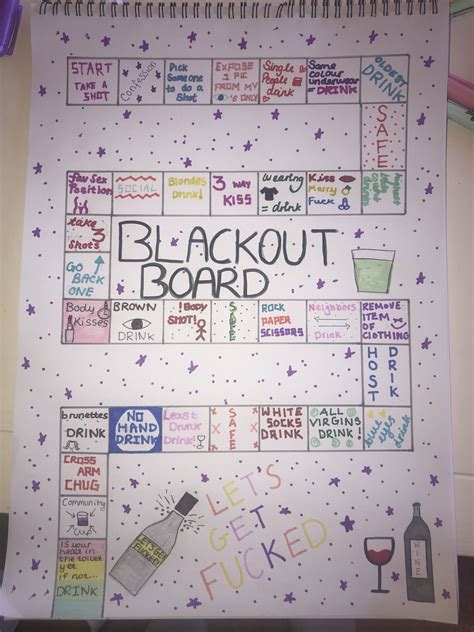 START
TAKE A
SHOT
Confession
Pick
Someone
to do a
Shot
EXPOSE
1 PIC
FROM MY
'S ONLY
Single
People
drink
Same
colour
underwear
=DRINK
OLDEST
DRINK
SAFE
highest
body
count
drinks
Kiss
Marry
Fuck
wearing
= drink
3
WAY
KISS
Blondes
Drink!
SOCIAL
fav Sex
Position
take
3
Shots
GO
BACK
ONE
BLACKOUT
BOARD
Body
Kisses
BROWN
DRINK
!BODY
SHOT!
SAFE
ROCK
PAPER
SCISSORS
Neighbors
Drink
REMOVE
ITEM
OF
CLOTHING
HOST
DRIK
blue
eyes
drink
ALL
VIRGINS
DRINK!
WHITE
SOCKS
DRINK
SAFE
Least
Drunk
Drink!
NO
HAND
DRINK
brunettes
DRINK
CROSS
ARM
CHUG
Community
CUP
IS your
head in
the toilet
yet
if not...
DRINK
LETS
GET
FUCKED
WINE